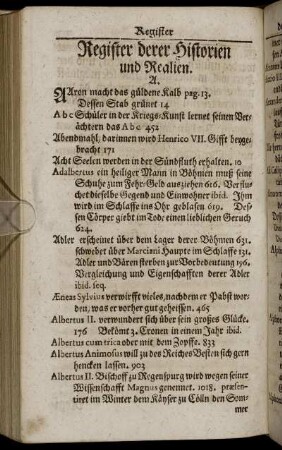 Register
Register derer Historien
und Realien.
A.
AAron macht das güldene Kalb pag. 13.
Dessen Stab grünet 14
A b c Schüler in der Kriegs-Kunst lernet seinen Ver-
ächtern das A b c 452
Abendmahl, darinnen wird Henrico VII. Gifft beyge-
bracht 171
Acht Seelen werden in der Sündfluth erhalten. 10
Adalbertus ein heiliger Mann in Böhmen muß seine
Schuhe zum Fehr-Geld ausziehen 616. Verflu-
chet dieselbe Gegend und Einwohner ibid. Ihm
wird im Schlaffe ins Ohr geblasen 619. Des-
sen Cörper giebt im Tode einen lieblichen Geruch
624.
Adler erscheinet über dem Lager derer Böhmen 631.
schwebet über Marciani Haupte im Schlaffe 131.
Adler und Bären sterben zur Vorbedeutung 196.
Vergleichung und Eigenschafften derer Adler
ibid. seq.
Æneas Sylvius verwirfft vieles, nachdem er Pabst wor-
den, was er vorher gut geheissen. 465
Albertus II. verwundert sich über sein grosses Glücke.
176 Bekömt 3. Cronen in einem Jahr ibid.
Albertus cum trica oder mit dem Zopffe. 833
Albertus Animosus will zu des Reiches Besten sich gern
hencken lassen. 903
Albertus II. Bischoff zu Regenspurg wird wegen seiner
Wissenschafft Magnus genennet. 1018. præsen-
tiret im Winter dem Käyser zu Cölln den Som-
mer